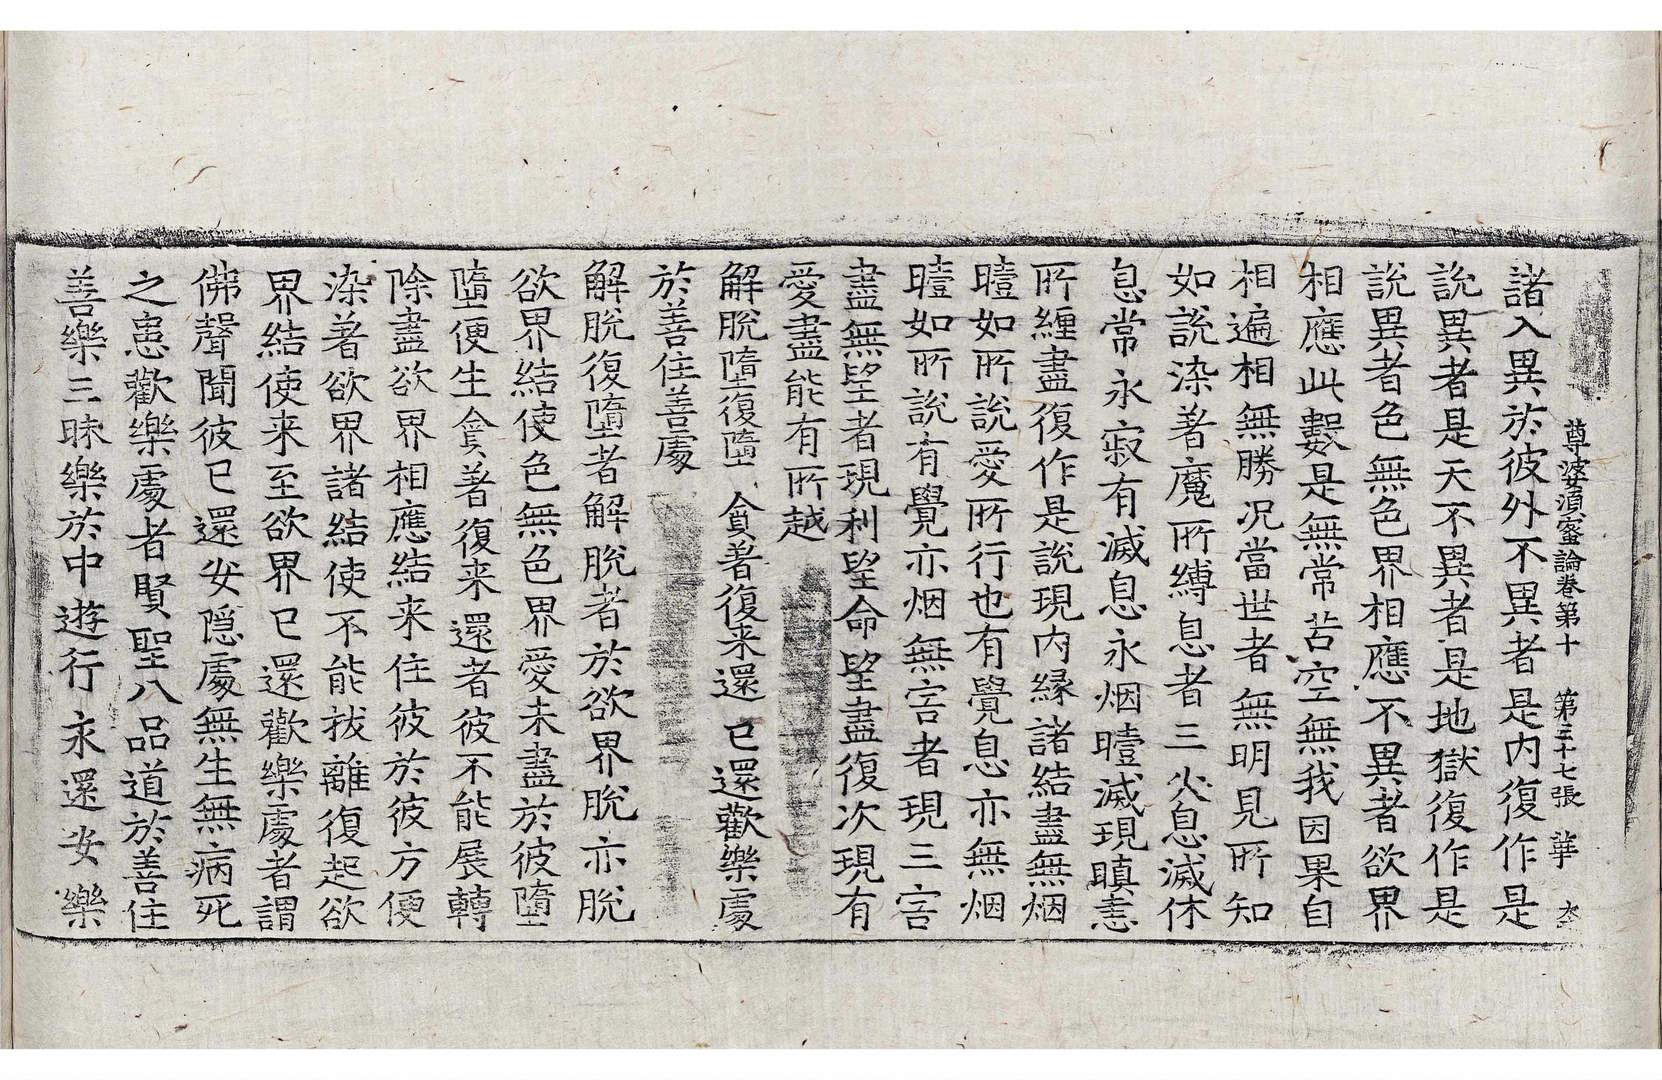 尊婆湏蜜論卷第十　第三十七張　華
諸入異於彼外不異者是内復作是
説異者是天不異者是地獄復作是
説異者色無色界相應不異者欲界
相應此數是無常苦空無我因果自
相遍相無勝况當世者無明見所知
如說染著魔所縛息者三火息滅休
息常永寂有滅息永烟曀滅現瞋恚
所纏盡復作是說現内縁諸結盡無烟
曀如所說愛所行也有覺息亦無烟
曀如所說有覺亦烟無害者現三害
盡無望者現利望命望盡復次現有
愛盡能有所越
解脫墮復墮　貪著復来還　已還歡樂處
於善住善處
解脫復墮者解脫者於欲界脫亦脫
欲界結使色無色界愛未盡於彼墮
墮便生貪著復来還者彼不能展轉
除盡欲界相應結来住彼於彼方便
染著欲界諸結使不能拔離復起欲
界結使来至欲界已還歡樂處者謂
佛聲聞彼已還安隱處無生無病死
之患歡樂處者賢聖八品道於善住
善樂三昧樂於中遊行永還安樂